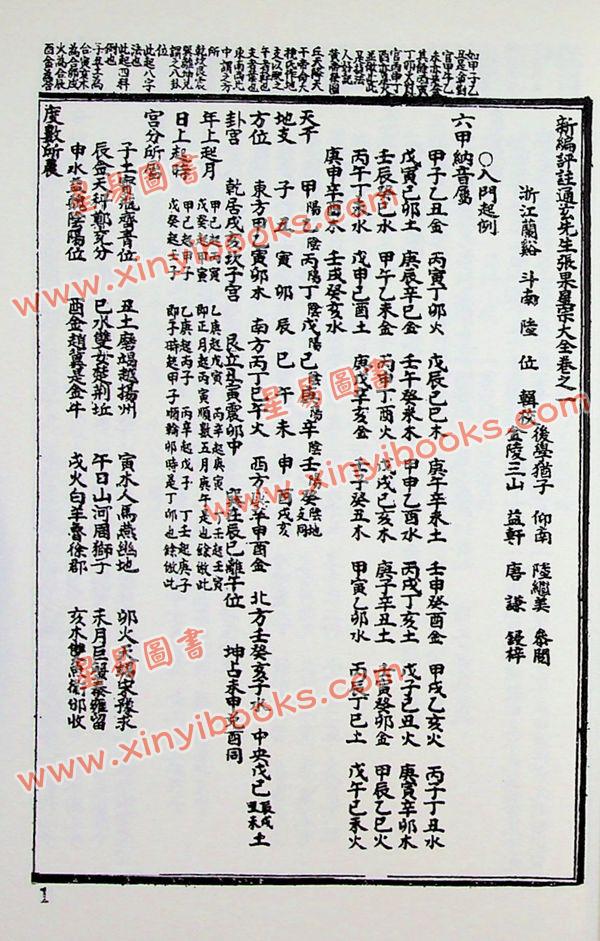 新編評註通玄先生張果星宗大全卷之一
浙江蘭谿 斗南 陸 位 輯校
後學猶子 仰南 陸繼美 參閱
金陵三山 益軒 唐 謙 鋟梓
○入門起例
六甲納音屬
甲子乙丑金 丙寅丁卯火 戊辰己巳木 庚午辛未土 壬申癸酉金 甲戌乙亥火 丙子丁丑水
戊寅己卯土 庚辰辛巳金 壬午癸未木 甲申乙酉水 丙戌丁亥土 戊子己丑火 庚寅辛卯木
壬辰癸巳水 甲午乙未金 丙申丁酉火 戊戌己亥木 庚子辛丑土 壬寅癸卯金 甲辰乙巳火
丙午丁未水 戊申己酉土 庚戌辛亥金 壬子癸丑木 甲寅乙卯水 丙辰丁巳土 戊午己未火
庚申辛酉木 壬戌癸亥水
天干 甲陽乙陰丙陽丁陰戊陽己陰庚陽辛陰壬陽癸陰地支同
地支 子丑寅卯辰巳午未申酉戌亥
方位 東方甲乙寅卯木 南方丙丁巳午火 西方庚辛申酉金 北方壬癸亥子水 中央戊己辰戌丑未土
卦宮 乾居戌亥坎子宮 艮立丑寅震卯中 巽在辰巳離午位 坤占未申兌酉同
年上起月 甲己起丙寅 乙庚起戊寅 丙辛起庚寅 丁壬起壬寅
戊癸起甲寅 即正月起丙寅順數五月庚午是也餘倣此
日上起時 甲己起甲子 乙庚起丙子 丙辛起戊子 丁壬起庚子
戊癸起壬子 即子時起甲子順輪卯時是丁卯也餘倣此
宮分所屬
子土寶瓶齊青位 丑土磨竭越揚州 寅木人馬燕幽地 卯火天蝎宋豫求
辰金天秤鄭兗分 巳水雙女楚荊丘 午日山河周獅子 未月巨蟹秦雍留
申水陰陽位 酉金趙冀是金牛 戌火白羊魯徐郡 亥木雙魚衛邶收
度數所屬
1
星易圖書
www.xinyibooks.com
星易圖書
www.xinyibooks.com
星易圖書
www.xinyibooks.com